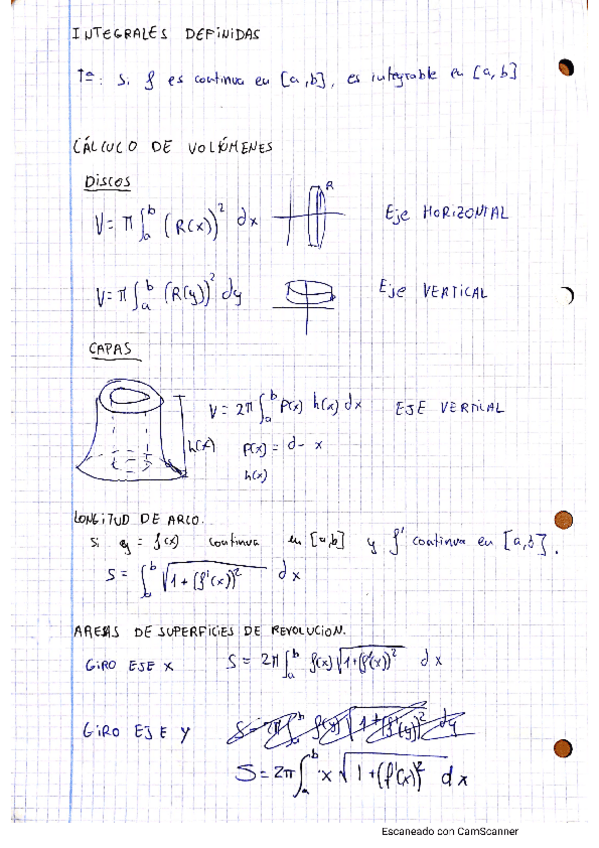 INTEGRALES DEFINIDAS
Tª: Si f es continua en [a,b], es integrable en [a,b]
CÁLCULO DE VOLÚMENES
DISCOS
V = π ∫_a^b (R(x))² dx R Eje HORIZONTAL
V = π ∫_a^b (R(y))² dy Eje VERTICAL
CAPAS
V = 2π ∫_a^b p(x) h(x) dx EJE VERTICAL
h(x) p(x) = d - x
h(x)
LONGITUD DE ARCO.
Si y = f(x) continua en [a,b] y f' continua en [a,b].
S = ∫_b^b √(1 + (f'(x))²) dx
AREAS DE SUPERFICIES DE REVOLUCION.
GIRO EJE X S = 2π ∫_a^b f(x) √(1+(f'(x))²) dx
GIRO EJE Y
S = 2π ∫_a^b x √(1 + (f'(x))²) dx
Escaneado con CamScanner